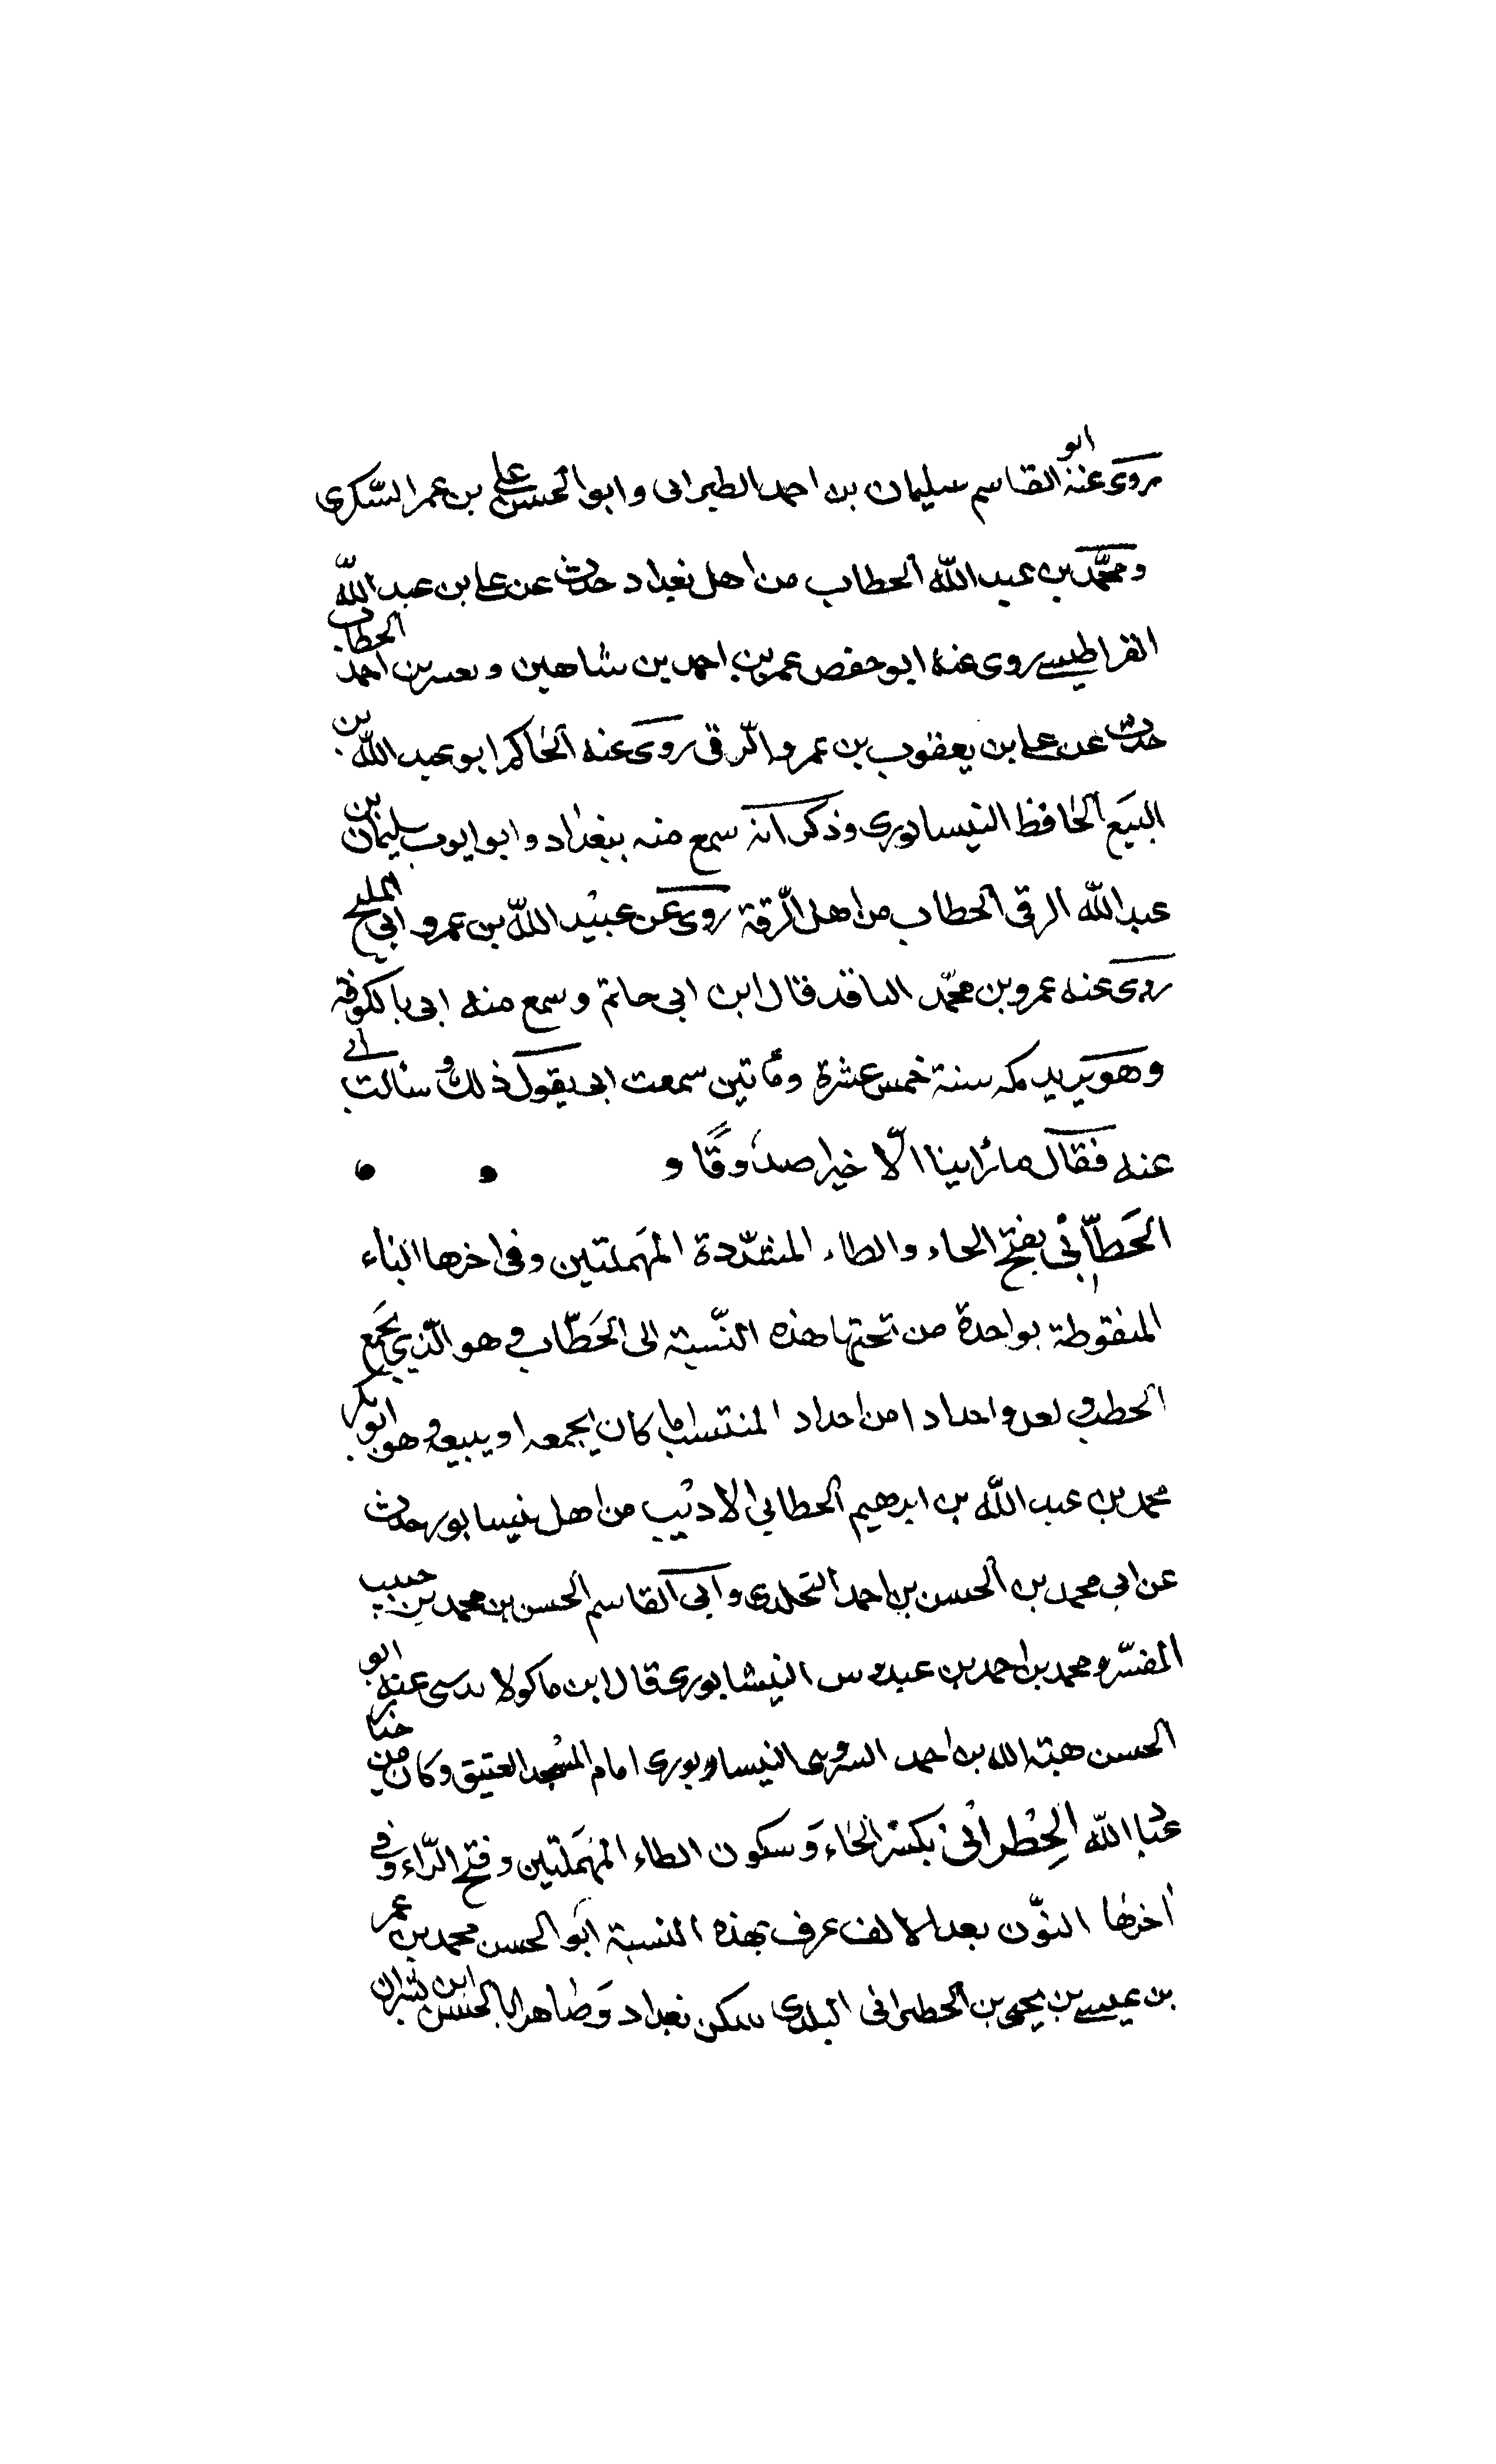 روى عنه ابو القاسم سليمان بن احمد الطبرانى وابو الحسن على بن عمر السّكرى
ومحمّد بن عبد الله الحطاب من اهل بغداد حدث عن على بن عبد الله
القراطيسے روى عنه ابو حفص عمر بن احمد بن شاهين و بن احمد الحطاب
حدث عن على بن يعقوب بن عمرو الرّقى روى عنه الحاكم ابو عبد الله بن
البيَع الحافظ النيسابورى وذكر انه سمع منه ببغداد وابو ايوب سليمان بن
عبد الله الرقى الحطاب من اهل الرّقة روى عن عبيْد اللّه بن عمرو ابى المليح
روى عنه عمرو بن محمّد الناقد قال ابن ابى حاتم وسمع منه ابى بالكوفة
وهو يريد مكه سنة خمس عشرة ومأتين سمعت ابى يقول ذلك وسألت ابى
عنه فقال ما رأينا الّا خيرا صدوقًا و
الحَطّابْى بفتح الحاء والطاء المشدّدة المهَملتين وفى اخرها الباء
المنقوطة بواحدة من تحتها هذه النّسبة الى الحَطّاب وهو الّذى يجَمع
الحطب ولعل واحدا من اجداد المنتسب كان يجمعه او يبيعه وهو ابو بكر
محمد بن عبد اللّه بن ابرهيم الحطابى الاديْب من اهل نيسابور حدث
عن ابى محمد بن الحسن بن احمد المخلدى وابى القاسم الحسن بن محمد بن حبيب
المفسّر ومحمد بن احمد بن عبدوس النيشابورى قال ابن ماكولا عنه ابو
الحسن هبة الله بن احمد النيسابورى امام المسْجد العتيق وكان من خيار
عباد اللّه الحِطْرانْى بكسْر الحاء وَسكون الطاء المهَملتين وفتح الرّاء وفى
اخرها النوّن بعد الالف عرف بهذه النسبة ابَو الحسن محمد بن عمر
بن عيسے بن يحيى بن الحطرانى البلدى سكن بغداد وَصاهر ابا الحسين ابن بشران